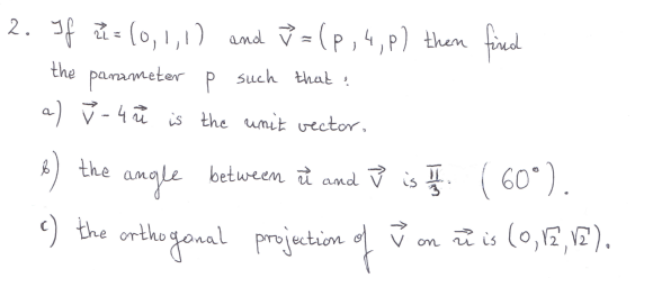 2. If u⃗ = (0,1,1) and v⃗ = (p,4,p) then find
the parameter p such that :
a) v⃗ - 4u⃗ is the unit vector.
b) the angle between u⃗ and v⃗ is π/3. (60°).
c) the orthogonal projection of v⃗ on u⃗ is (0,√2,√2).